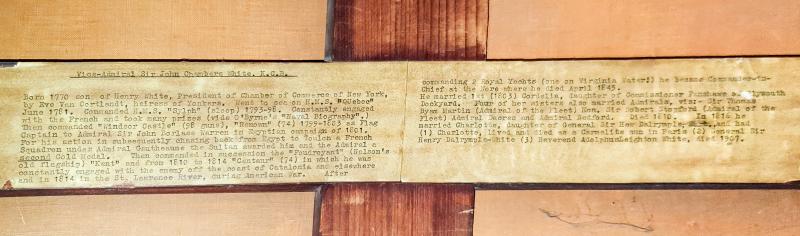 Vice-Admiral Sir John Chambers White, K.C.B.
Born 1770 son of Henry White, President of Chamber of Commerce of New York,
by Eve Van Cortlandt, heiress of Yonkers. Went to sea on H.M.S. "Quebec"
June 1781. Commanded H.M.S. "Sylph" (sloop) 1793-98. Constantly engaged
with the French and took many prizes (vide O'Byrne's "Naval Biography".)
Then commanded "Windsor Castle" (98 guns), "Renown" (74) 1799-1803 as Flag
Captain to Admiral Sir John Borlase Warren in Egyptian campaign of 1801.
For his action in subsequently chasing back from Egypt to Toulon a French
Squadron under Admiral Gantheaume the Sultan awarded him and the Admiral a
second Gold Medal. Then commanded in succession the "Foudroyant" (Nelson's
old flagship) "Kent" and from 1810 to 1814 "Centaur" (74) in which he was
constantly engaged with the enemy off the coast of Catalonia and elsewhere
and in 1814 in the St. Lawrence River, during American War. After
commanding 2 Royal Yachts (one on Virginia Water!) he became Commander-in-
Chief at the Nore where he died April 1845.
He married 1st (1803) Cordelia, daughter of Commissioner Fanshawe Plymouth
Dockyard. Four of her sisters also married Admirals, viz: Sir Thomas
Byam Martin (Admiral of the Fleet) Hon. Sir Robert Stopford (Admiral of the
Fleet) Admiral Dacres and Admiral Bedford. Died 1810. In 1816 he
married Charlotte, daughter of General Sir Hew Dalrymple and had
(1) Charlotte, lived and died as a Carmelite nun in Paris (2) General Sir
Henry Dalrymple-White (3) Reverend Adolphus Leighton White, died 1907.